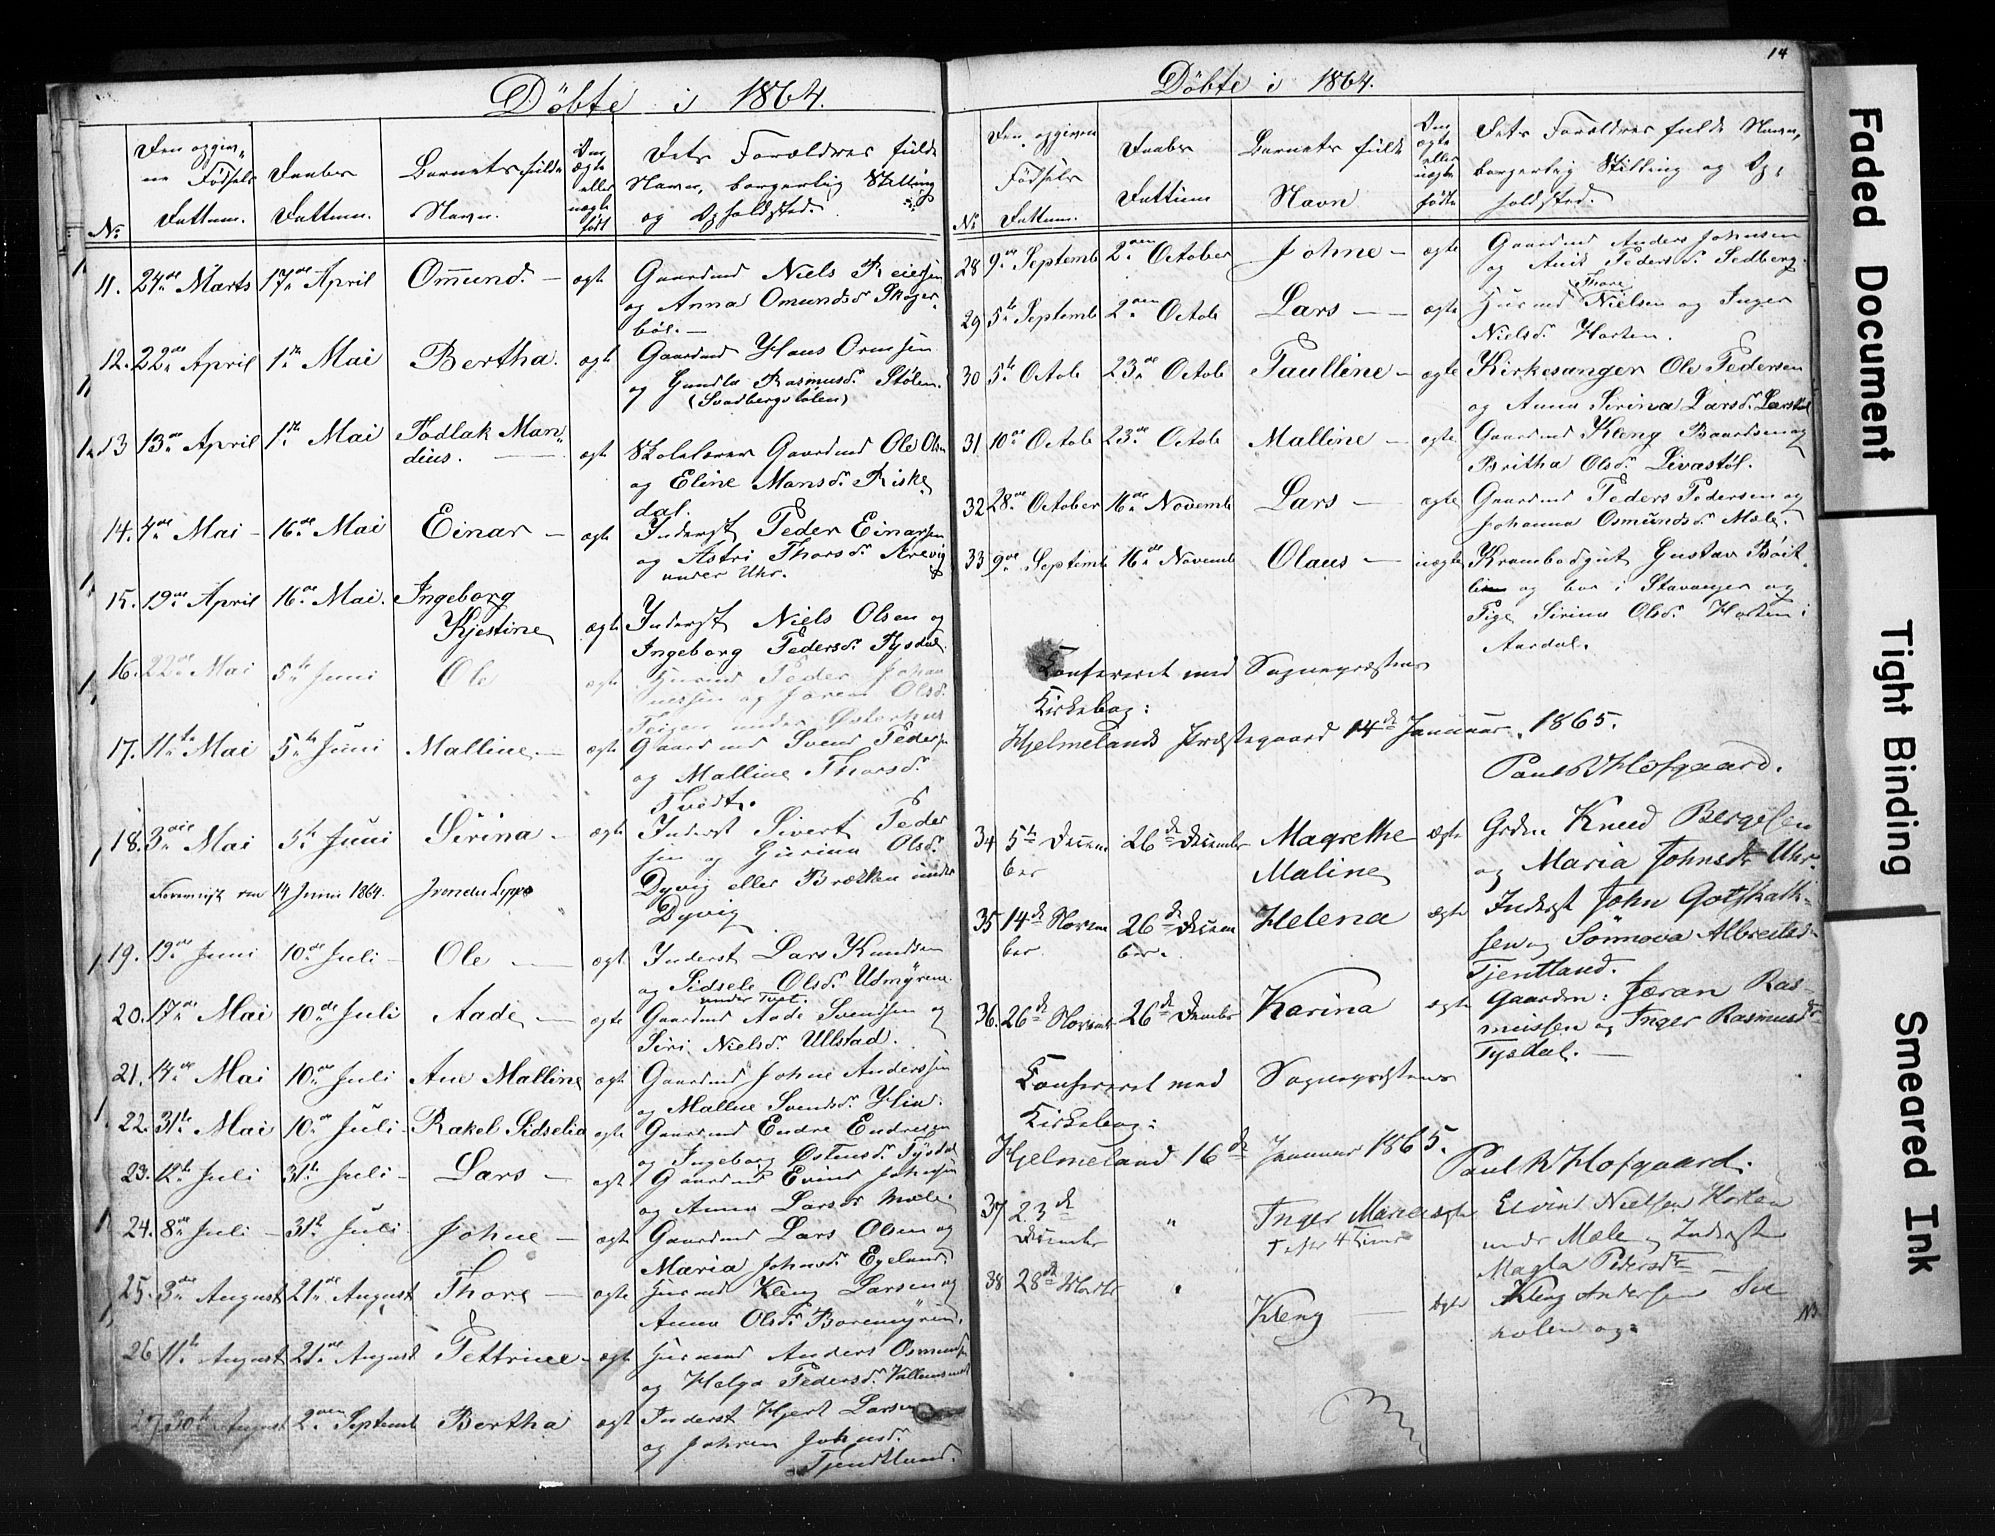 Döbte i 1864.
No
Den opgivne Födsels Dattum.
Daabs Dattum.
Barnets fulde Navn.
Om ægte eller uægte födt
Dets Forældres fulde Navn, borgerlig Stilling og Opholdsted.
11. 24de Marts 17de April Omund. — ægte Gaardmd Niels Reiersen
og Anna Omundsd. Skoger-
böe. —
12. 22de April 1ste Mai Bertha. ægte Gaardmd Hans Ormsen
og Gundla Rasmusd. Stölen.
(Svadbergstölen)
13 13de April 1ste Mai Todlak Man-
dius. — ægte Skolelærer Gaardmd Ole Olsen
og Eline Mansd. Riske-
dal.
14. 4de Mai — 16de Mai Einar — ægte Inderst Peder Einarsen
og Astri Thorsd. Arevig
under Uhr.
15. 19de April 16de Mai. Ingeborg
Kjestine ægte Inderst Niels Olsen og
Ingeborg Pedersd. Tysdal.
16. 22de Mai 5te Juni Ole ægte Husmd Peder Johan-
nessen og Jorena Olsd.
Teigen under Østerhus
17. 11te Mai 5te Juni Malline. — ægte Gaardmd Svend Peders.
og Malline Thorsd.
Tvedt.
18. 3die Mai 5te Juni Sirina — ægte Inderst Sivert Peder-
sen og Gurina Olsd.
Dyvig eller Brækken under
Dyvig
14 Juni 1864.
19. 19de Juni 10de Juli — Ole — ægte Inderst Lars Knudsen
og Sidsele Olsd. Udmyrene
under Tvet.
20. 17de Mai 10de Juli Aade — ægte Gaardmd Aade Svendsen og
Siri Nielsd. Ullstad.
21. 14de Mai 10de Juli Ane Malline ægte Gaardmd Johne Anderssen
og Malline Svendsd. Hia.
22. 31te Mai 10de Juli — Rakel Sidselia ægte Gaardmd Endre Endresen
og Ingeborg Ostensd. Tysdal
23. 12te Juli 31te Juli — Lars — ægte Gaardmd Eivind Johnsen
og Anna Larsd. Mæle.
24. 8de Juli — 31te Juli — Johne — ægte Gaardmd Lars Olsen og
Maria Johnsd. Egeland.
25. 3die August 21de August Thore — ægte Husmd Kleng Larsen og
Anna Olsd. Boremyren.
26 11te August 21de August Pettrine — ægte Husmand Anders Osmunds.
og Helga Pedersd.
27 30te August 2den Septemb Bertha ægte Inderst Hjert Larsen
og Johren Johnsd.
Tjendtland.
14
Döbte i 1864.
No
Den opgivne Födsels Dattum.
Daabs Dattum
Barnets fulde Navn
Om ægte eller uægte födte
Dets Forældres fulde Navn, borgerlig Stilling og Op-
holdsted.
28 9de Septemb 2den October Johne — ægte Gaardmd Anders Johnsen
og Anis Pedersd. Sedberg.
29 5te Septemb 2den Octob Lars — — ægte Husmd Thore Nielsen og Inger
Nielsd. Horten.
30 5te Octob 23de Octob Paulline — ægte Kirkesanger Ole Pedersen
og Anna Sirina Larsd.
31 10de Octob 23de Octob Malline — ægte Gaardmd Kleng Baardsen og
Britha Olsd. Livastöl.
32 28de October 16de Novemb Lars — ægte Gaardmd Peders Pedersen og
Johanna Osmundsd. Mæle.
33 9de Septemb 16de Novemb Olaus — uægte Krambodgut Gustav
og bor i Stavanger og
Pige Sirina Olsd. Horten i
Aardal.
Confereret med Sognepræstens
Kirkebog:
Hjelmelands Præstegaard 14de Januar 1865.
Paul Hofgaard.
34 5te Decem-
ber 26de December Magrethe
Maline ægte Grdm Knud Bergesen
og Maria Johnsdr Uhr
35 14de Novem-
ber. 26de Decem-
ber. Helena ægte Inderst John Gotskalk-
sen og Sönnova Albretsd
Tjentland.
36. 26de Novemb 26de Decembr Karina ægte Gaardm: Jæran Ras-
mussen og Inger Rasmusdr
Tysdal. —
Confereret med Sognepræstens
Kirkebog:
Hjelmeland 16de Januar 1865.
Paul Hofgaard.
37 23de
December " Inger Maria ægte Eivind Nielsen Horten
† efter 4 Timer under Mæle og Inderst
Magla Pedersdtr —
38 28de " Kleng — ægte Kleng Andersen
og: NB.
Faded Document
Tight Binding
Smeared Ink